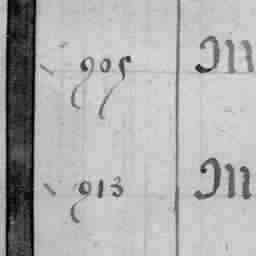 905 m
913 m